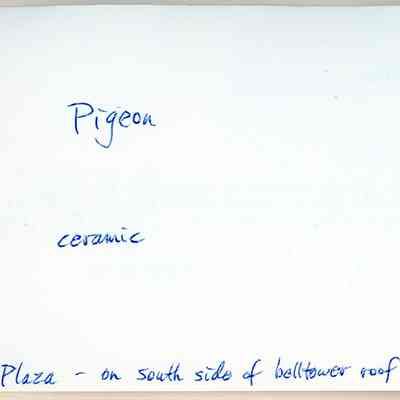 Pigeon
ceramic
Plaza - on south side of belltower roof